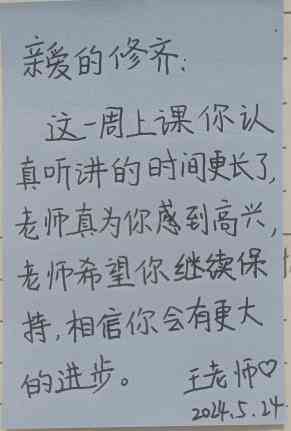 亲爱的修齐:
这一周上课你认
真听讲的时间更长了,
老师真为你感到高兴,
老师希望你继续保
持,相信你会有更大
的进步。 王老师♡
2024.5.24